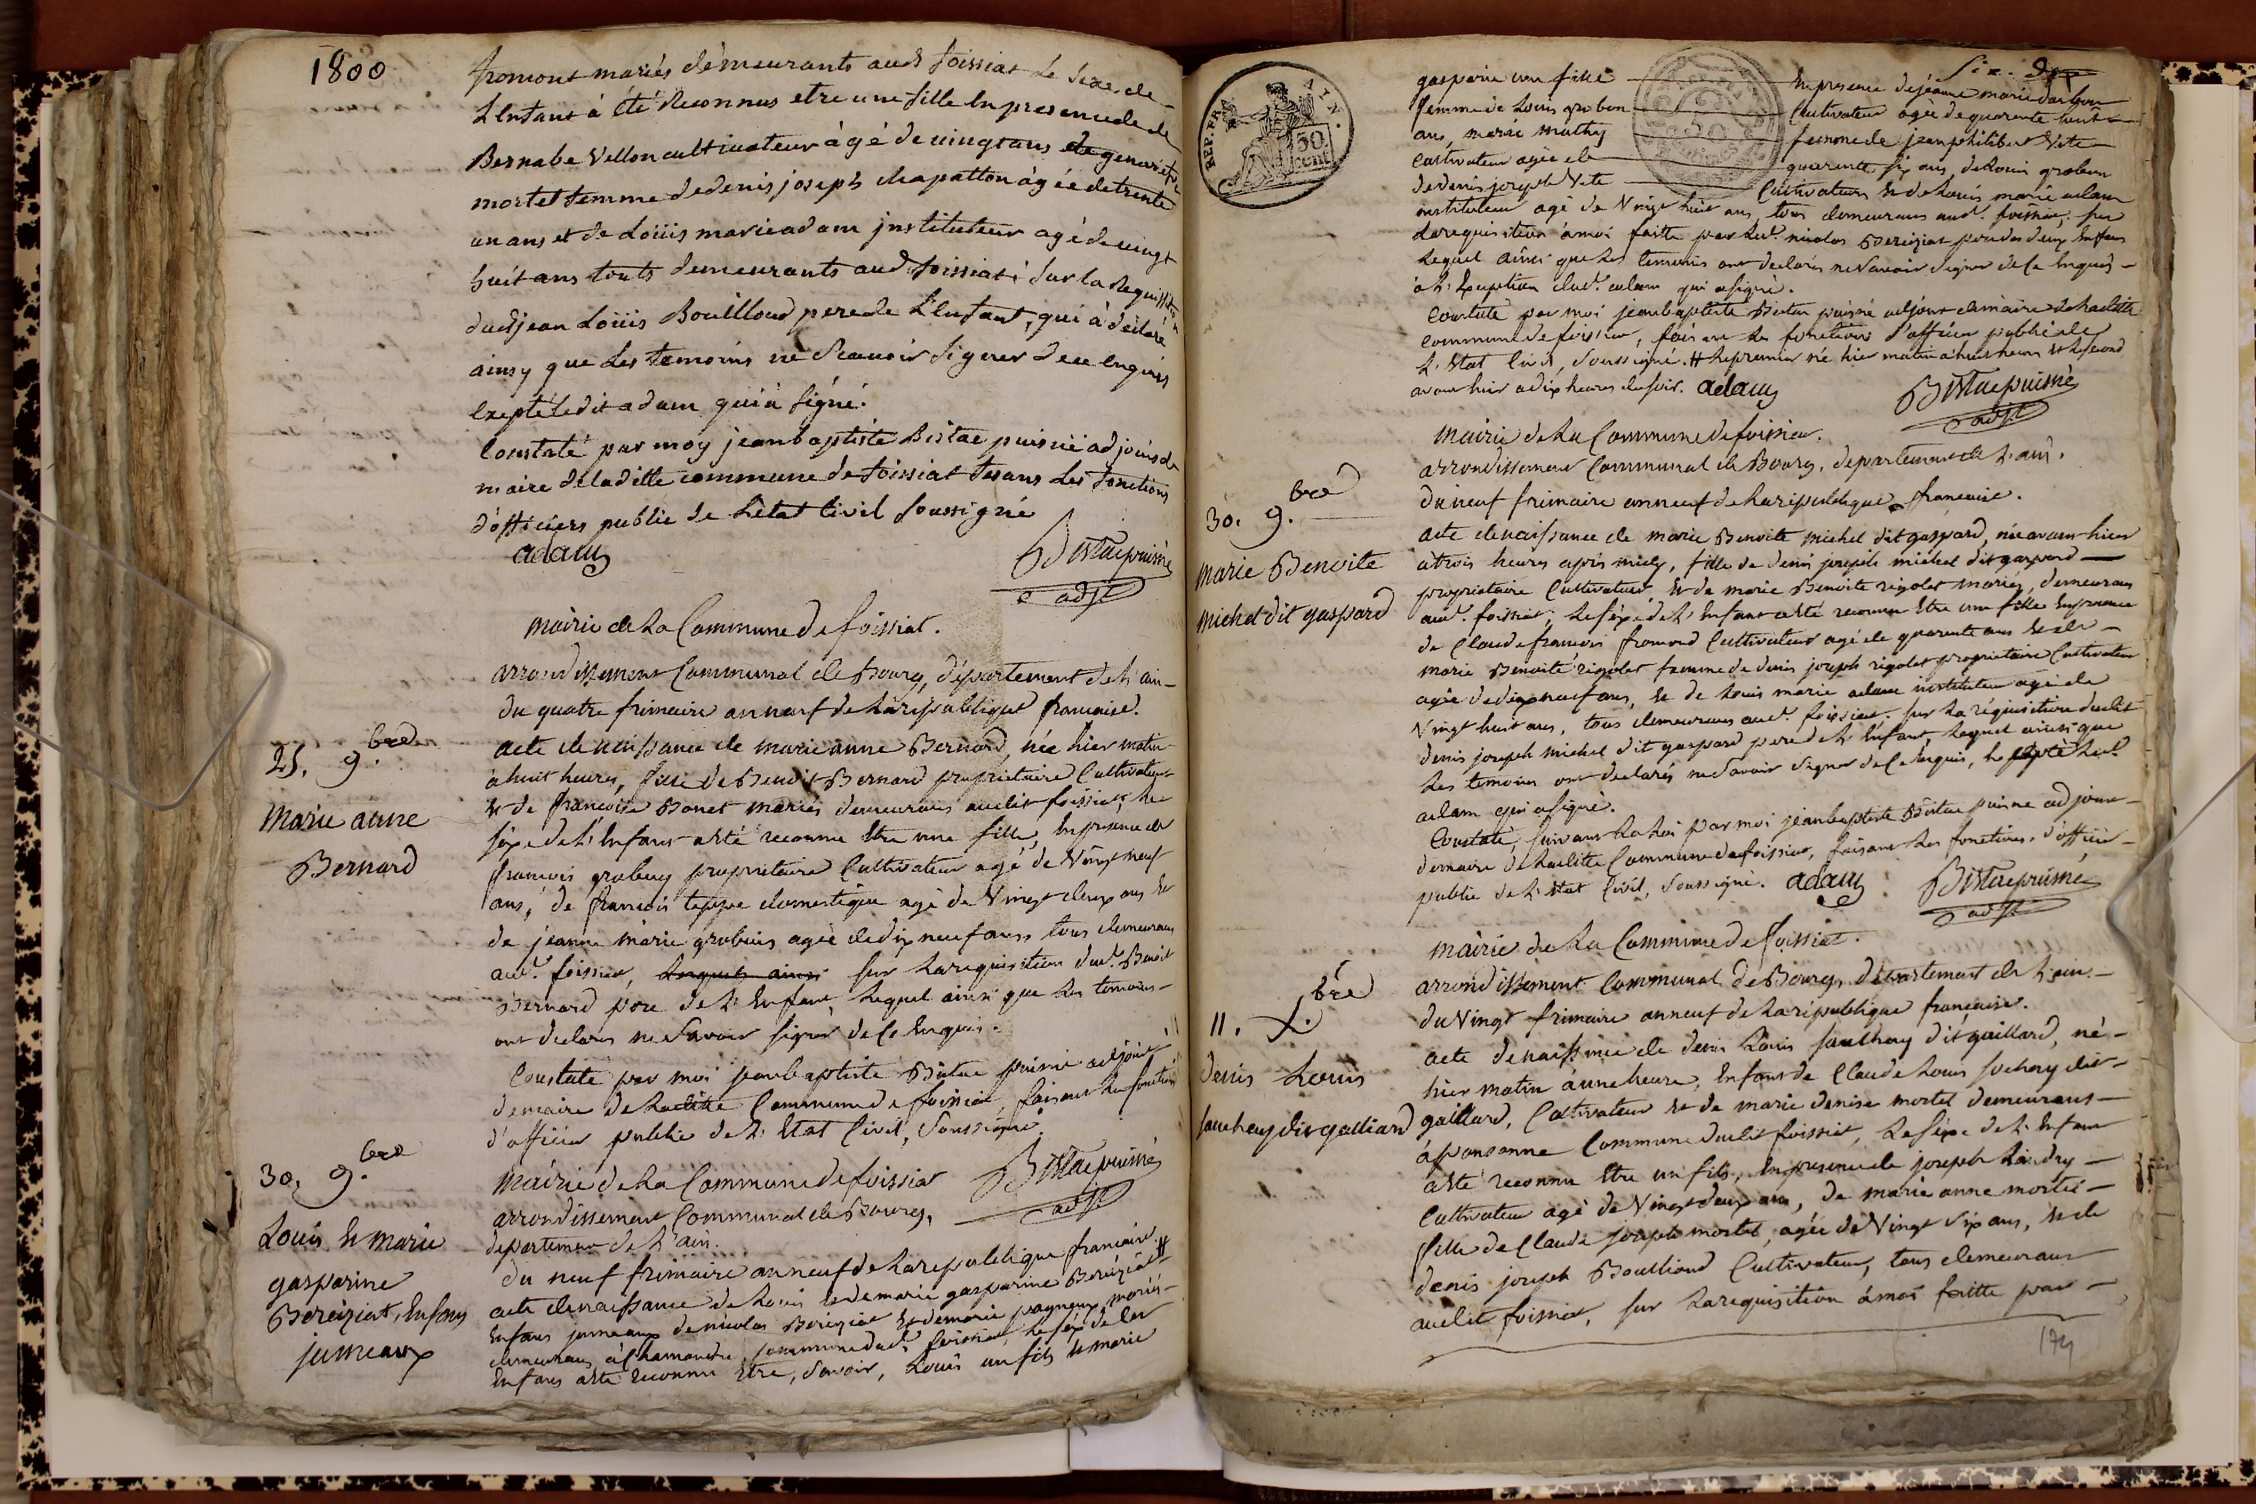 1800
fromont mariés demeurants aud foissiat le sexe de
L'enfant à été Reconnus etre une fille En presence de de
Bernabe Vellon cultivateur àgé de vingt ans
mortel femme de denis joseph chapatton àgée de trente
un ans et de Loüis marie adam jnstituteur agé de vingt
huit ans touts demeurants aud foissiat sur la Requisition
dud jean Loüis Bouilloud pere de L'enfant, qui à déclaré
ainsy que les temoins ne Scavoir signer de ce enquis
Excepté ledit adam qui à signé.
Constaté par moy jean baptiste Bistac puisné adjoint de
maire de laditte commune de foissiat fesans les fonctions
d'officiers public de L'etat Civil soussigné
adam
Bistac puisné
adjt
25. 9.bre
Marie anne
Bernard
Mairie de La Commune de foissiat.
arrondissement Communal de Bourg, département de L'ain
du quatre frimaire an neuf de La république francaise.
acte de naissance de marie anne Bernard, née hier matin
à huit heures, fille de Benoit Bernard propriétaire Cultivateur
Et de francoise Bonet mariés demeurans audit foissiat, Le
séxe de L'Enfant a êté reconnu Etre une fille, En presence de
francois grobuy propriétaire Cultivateur agé de Vingt neuf
ans, de francois teppe domestique agé de Vingt deux ans Et
de jeanne marie grobuis agée de dix neuf ans tous demeurans
aud. foissiat, Lesquels ainsi sur La requisition dud. Benoit
Bernard pere de L'Enfant, Lequel ainsi que Les temoins
ont declarés ne Savoir signer de Ce Enquis.
Constaté par moi jean baptiste Bistac puisné adjoint
de maire de Laditte Commune de foissiat, faisant Les fonctions
d'officier public de L'Etat Civil, Soussigné.
Bistac puisné
adjt
30. 9.bre
Louis Et marie
gasparine
Bereiziat, Enfans
jumeaux
Mairie de La Commune de foissiat
arrondissement Communal de Bourg,
departement de L'ain.
du neuf frimaire an neuf de La republique francaise. #
acte de naissance de Louis Et de marie gasparine Bereiziat
Enfans jumeaux de nicolas Bereiziat Et de marie pagneux mariés
demeurans à Chamandre, commune dud. foissiat, Le séxe de Les
Enfans a êté reconnu Etre, Savoir, Louis un fils Et marie
REP. FRA. AIN.
50 cent
gasparine une fille En presence de jeanne marie darbon
femme de Louis grobon Cultivateur agée de quarante huit
ans, marie mathy femme de jean philibert Vete
Cultivateur agée de quarante six ans, de Louis grobon
de denis joseph Vete Cultivateurs Et de Louis marie adam
instituteur agé de Vingt huit ans, tous demeurans aud. foissiat, sur
La requisition à moi faitte par Led. nicolas Bereiziat pere des deux Enfans
Lequel ainsi que Les temoins ont declarés ne Savoir signer de Ce Enquis
à L'Exception dud. adam qui a signé.
Constaté par moi jean baptiste Bistac puisné adjoint de maire de Laditte
commune de foissiat, faisant Les fonctions d'officier public de
L'Etat Civil, Soussigné. # Le premier né hier matin à huit heures Et Le second
avant hier a dix heures du soir. adam
Bistac puisné
adjt
30. 9.bre
Marie Benoite
Michel dit gaspard
Mairie de La Commune de foissiat.
arrondissement Communal de Bourg, departement de L'ain.
du neuf frimaire an neuf de La republique francaise.
acte de naissance de marie Benoite michel dit gaspard, née avant hier
à trois heures après midy, fille de denis joseph michel dit gaspard
propriétaire Cultivateur, Et de marie Benoite rigolet mariés, demeurans
aud. foissiat, Le séxe de L'Enfant a êté reconnu Etre une fille En presence
de Claude francois fromond Cultivateur agé de quarante ans Et de
marie Benoite rigolet femme de denis joseph rigolet propriétaire Cultivateur
agée de dix neuf ans, Et de Louis marie adam instituteur agé de
Vingt huit ans, tous demeurans aud. foissiat. sur La réquisition dudit
denis joseph michel dit gaspard pere de L'Enfant, Lequel ainsi que
Les temoins ont declarés ne Savoir signer de Ce Enquis, Excepté Led.
adam qui a signé.
Constaté suivant La Loi par moi jean baptiste Bistac puisné adjoint
de maire de Laditte Commune de foissiat, faisant Les fonctions d'officier
public de L'Etat Civil, Soussigné. adam
Bistac puisné
adjt
11. X.bre
denis Louis
sauchay dit galliard
Mairie de La Commune de foissiat.
arrondissement Communal de Bourg, département de L'ain.
du Vingt frimaire an neuf de La république française.
acte de naissance de denis Louis sauchay dit gaillard, né
hier matin à une heure, Enfant de Claude Louis sochay dit
gaillard, Cultivateur Et de marie denise mortel demeurans
à ponsonne Commune dudit foissiat, Le séxe de L'Enfant
a êté reconnu Etre un fils, En presence de joseph Landry
Cultivateur agé de Vingt deux ans, de marie anne mortel
fille de Claude joseph mortel, agée de Vingt six ans, Et de
denis joseph Boulliond Cultivateur, tous demeurans
audit foissiat, sur La requisition à moi faitte par